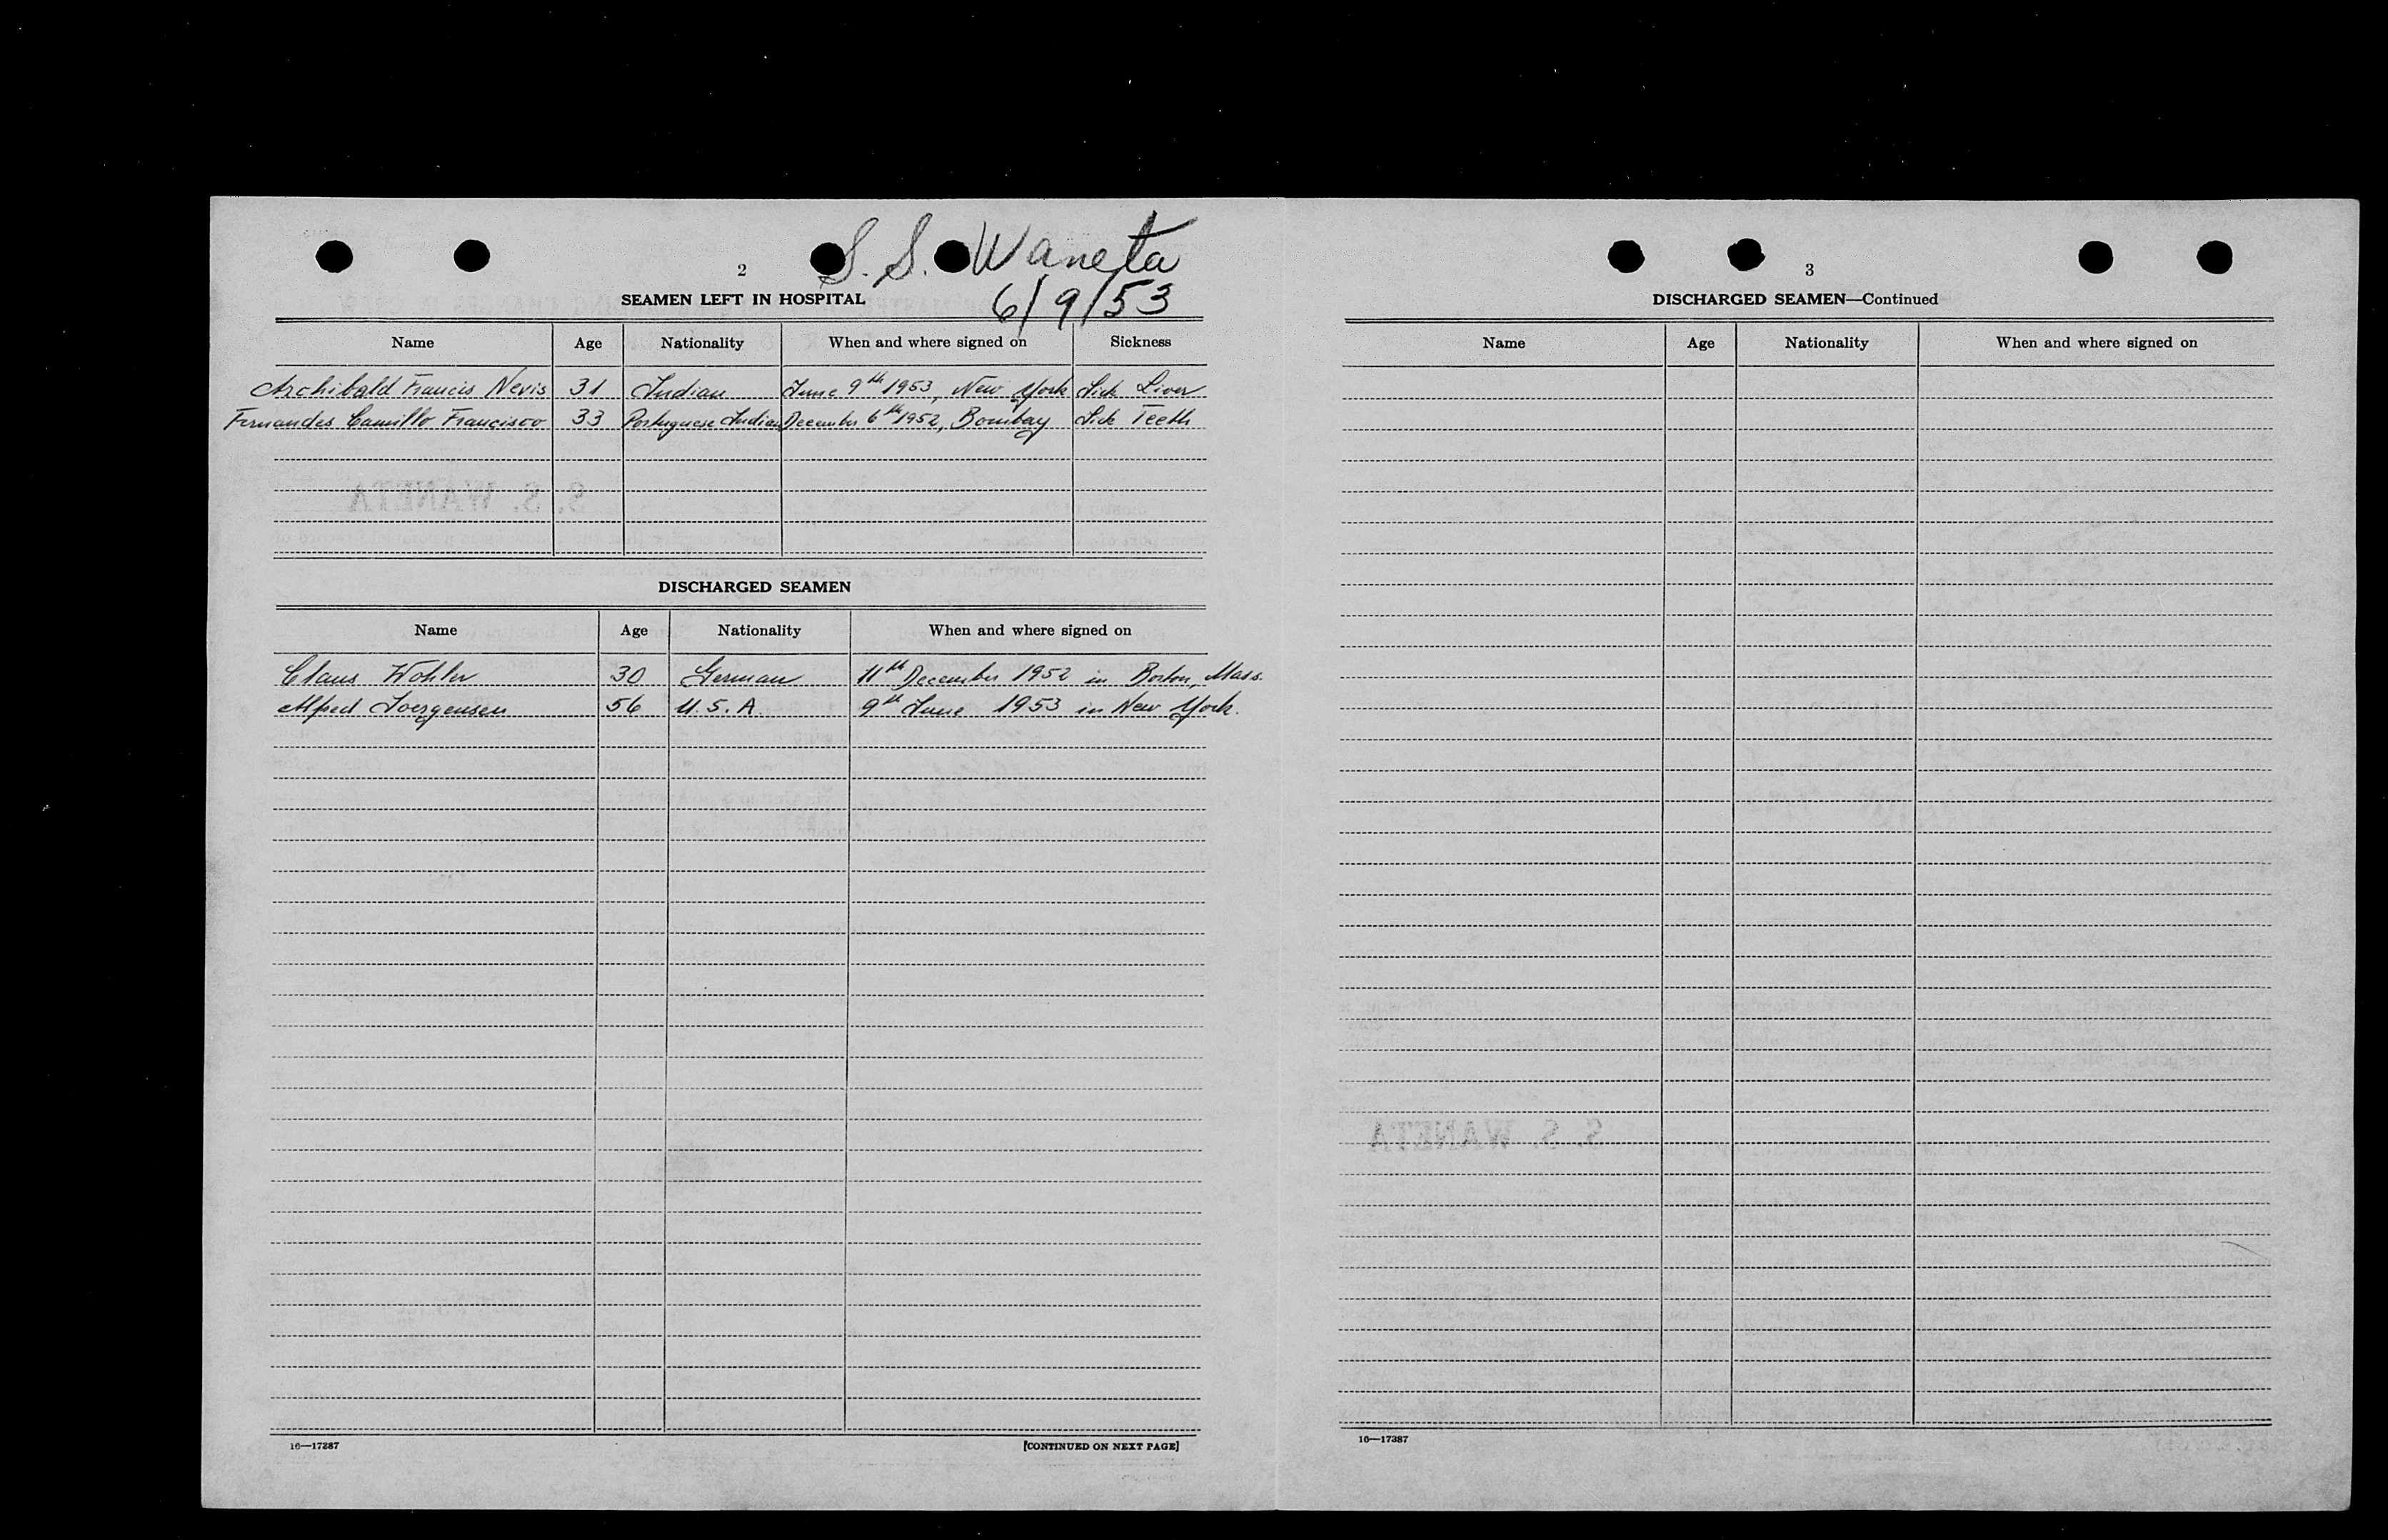 S. S. Waneta
2
6/9/53
SEAMEN LEFT IN HOSPITAL
Name Age Nationality When and where signed on Sickness
Archibald Francis Nevis 31 Indian June 9th 1953, New York Sick Liver
Fernandes Camillo Francisco 33 Portuguese Indian December 6th 1952, Bombay Sick Teeth
S. S. WANETA
DISCHARGED SEAMEN
Name Age Nationality When and where signed on
Claus Wohler 30 German 11th December 1952 in Boston, Mass.
Alfred Joergensen 56 U.S.A. 9th June 1953 in New York.
16—17287
[CONTINUED ON NEXT PAGE]
3
DISCHARGED SEAMEN—Continued
Name Age Nationality When and where signed on
S. S. WANETA
16—17387